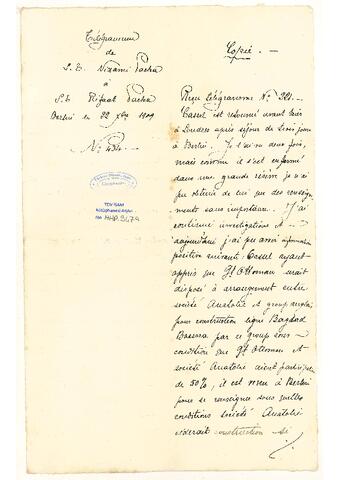 Télégramme
de
S. E. Nizami Pacha
à
S. E. Rifaat Pacha
Berlin le 22 xbre 1909
No. 434
TDV İSAM
Kütüphanesi Arşivi
No HHP.3479
Copie. —
Reçu télégramme No. 321.
Cassel est retourné avant hier
à Londres après séjour de trois jours
à Berlin. Je l'ai vu deux fois,
mais comme il s'est enfermé
dans une grande réserve je n'ai
pu obtenir de lui que des renseigne-
ments sans importance. J'ai
continué investigations et
aujourd'hui j'ai pu avoir information
positive suivante: Cassel ayant
appris que Gt Ottoman serait
disposé à arrangement entre
société Anatolie et group anglais
pour construction ligne Bagdad
Bassora par ce group sous
condition que Gt Ottoman et
société Anatolie aient participation
de 50%, il est venu à Berlin
pour se renseigner sous quelles
conditions société Anatolie
céderait construction si